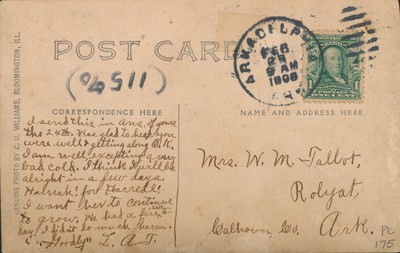 POST CARD
ARKADELPHIA
FEB
25
9 AM
1908
ARK.
1154
CORRESPONDENCE HERE
NAME AND ADDRESS HERE
GENUINE PHOTO BY C. U. WILLIAMS, BLOOMINGTON, ILL.
I send this in ans. of yours
the 24th. Was glad to hear you
were well & getting along O.K.
I am well, excepting a very
bad cold. I think I will be
alright in a few days.
Hurrah! for Harrell!
I want her to continue
to grow. We had a fire
day. I did not do much harm.
"Goodby" L. A. T.
Mrs. W. M. Tallot,
Rolyat,
Calhoun Co. Ark.
PC
175